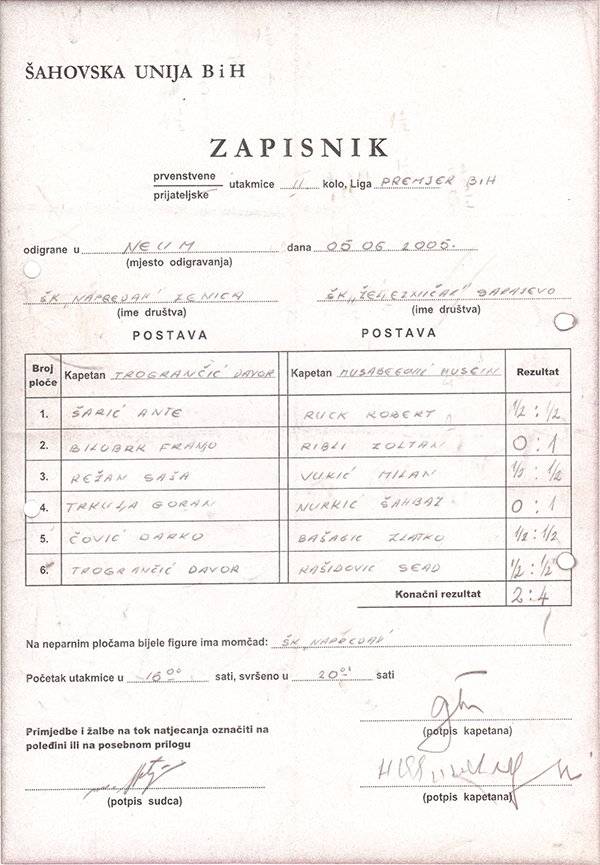 ŠAHOVSKA UNIJA B i H
ZAPISNIK
prvenstvene
prijateljske utakmice II kolo, Liga PREMJER BiH
odigrane u NEUM dana 05 06 2005.
(mjesto odigravanja)
ŠK "NAPREDAK" ZENICA ŠK "ŽELJEZNIČAR" SARAJEVO
(ime društva) (ime društva)
POSTAVA POSTAVA
Broj ploče Kapetan TROGRANČIĆ DAVOR Kapetan MUSABEGOVIĆ HUSEIN Rezultat
1. ŠARIĆ ANTE RUCK ROBERT ½ : ½
2. BILOBRK FRANJO RIBLI ZOLTAN 0 : 1
3. REŽAN SAŠA VUKIĆ MILAN ½ : ½
4. TRKULJA GORAN NURKIĆ ŠAHBAZ 0 : 1
5. ČOVIĆ DARKO BAŠAGIĆ ZLATKO ½ : ½
6. TROGRANČIĆ DAVOR RAŠIDOVIĆ SEAD ½ : ½
Konačni rezultat 2 : 4
Na neparnim pločama bijele figure ima momčad: ŠK "NAPREDAK"
Početak utakmice u 16 00 sati, svršeno u 20 01 sati
(potpis kapetana)
Primjedbe i žalbe na tok natjecanja označiti na
poleđini ili na posebnom prilogu
(potpis sudca) (potpis kapetana)